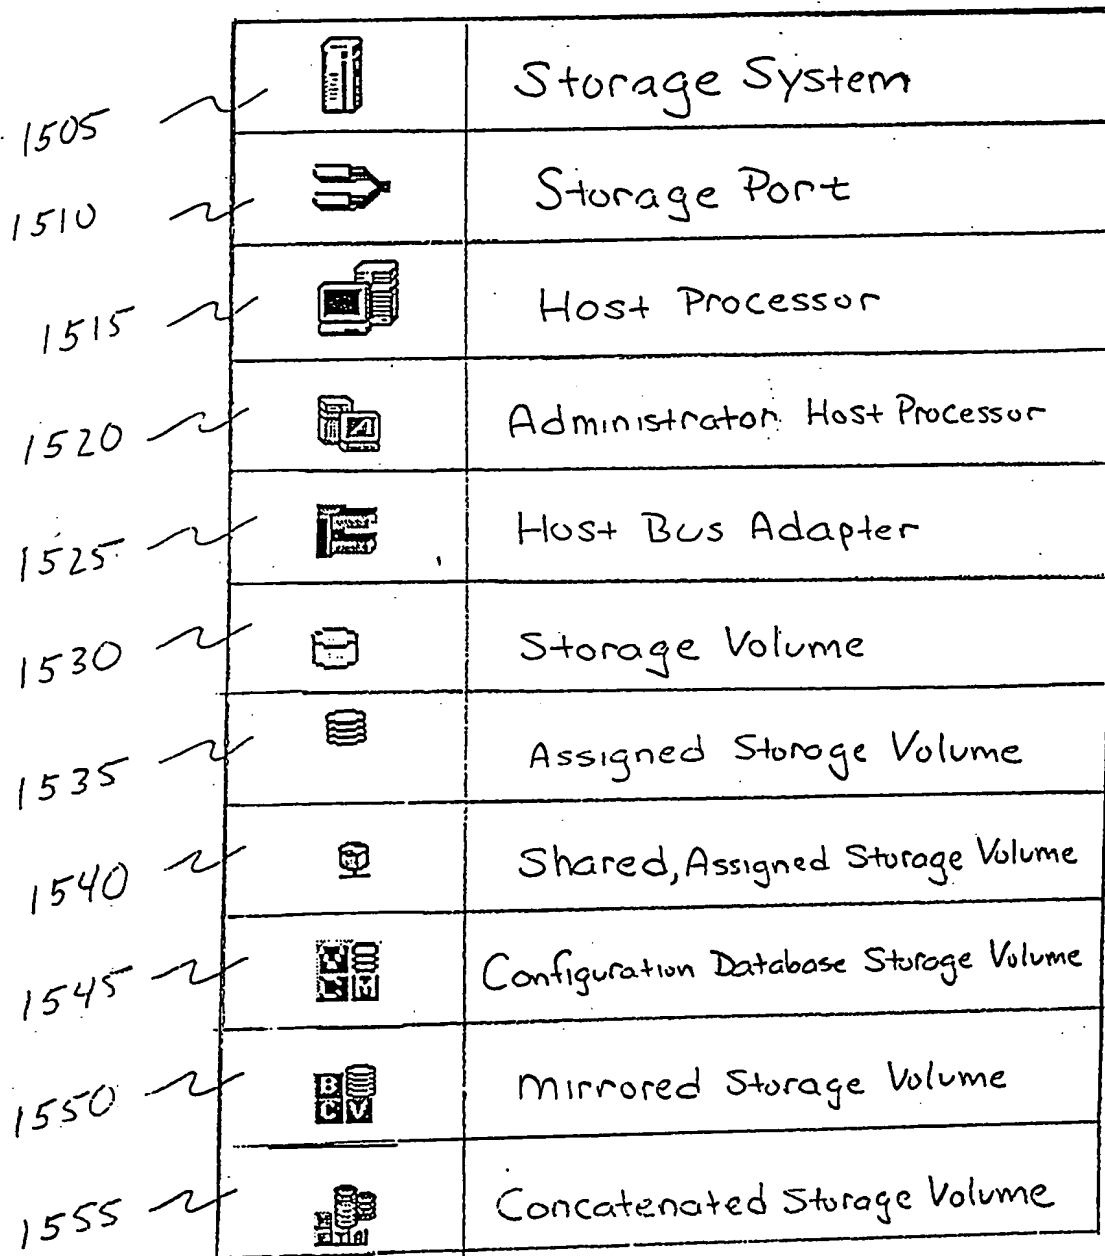 1505 Storage System
1510 Storage Port
1515 Host Processor
1520 Administrator Host Processor
1525 Host Bus Adapter
1530 Storage Volume
1535 Assigned Storage Volume
1540 Shared, Assigned Storage Volume
1545 Configuration Database Storage Volume
1550 B C V Mirrored Storage Volume
1555 Concatenated Storage Volume